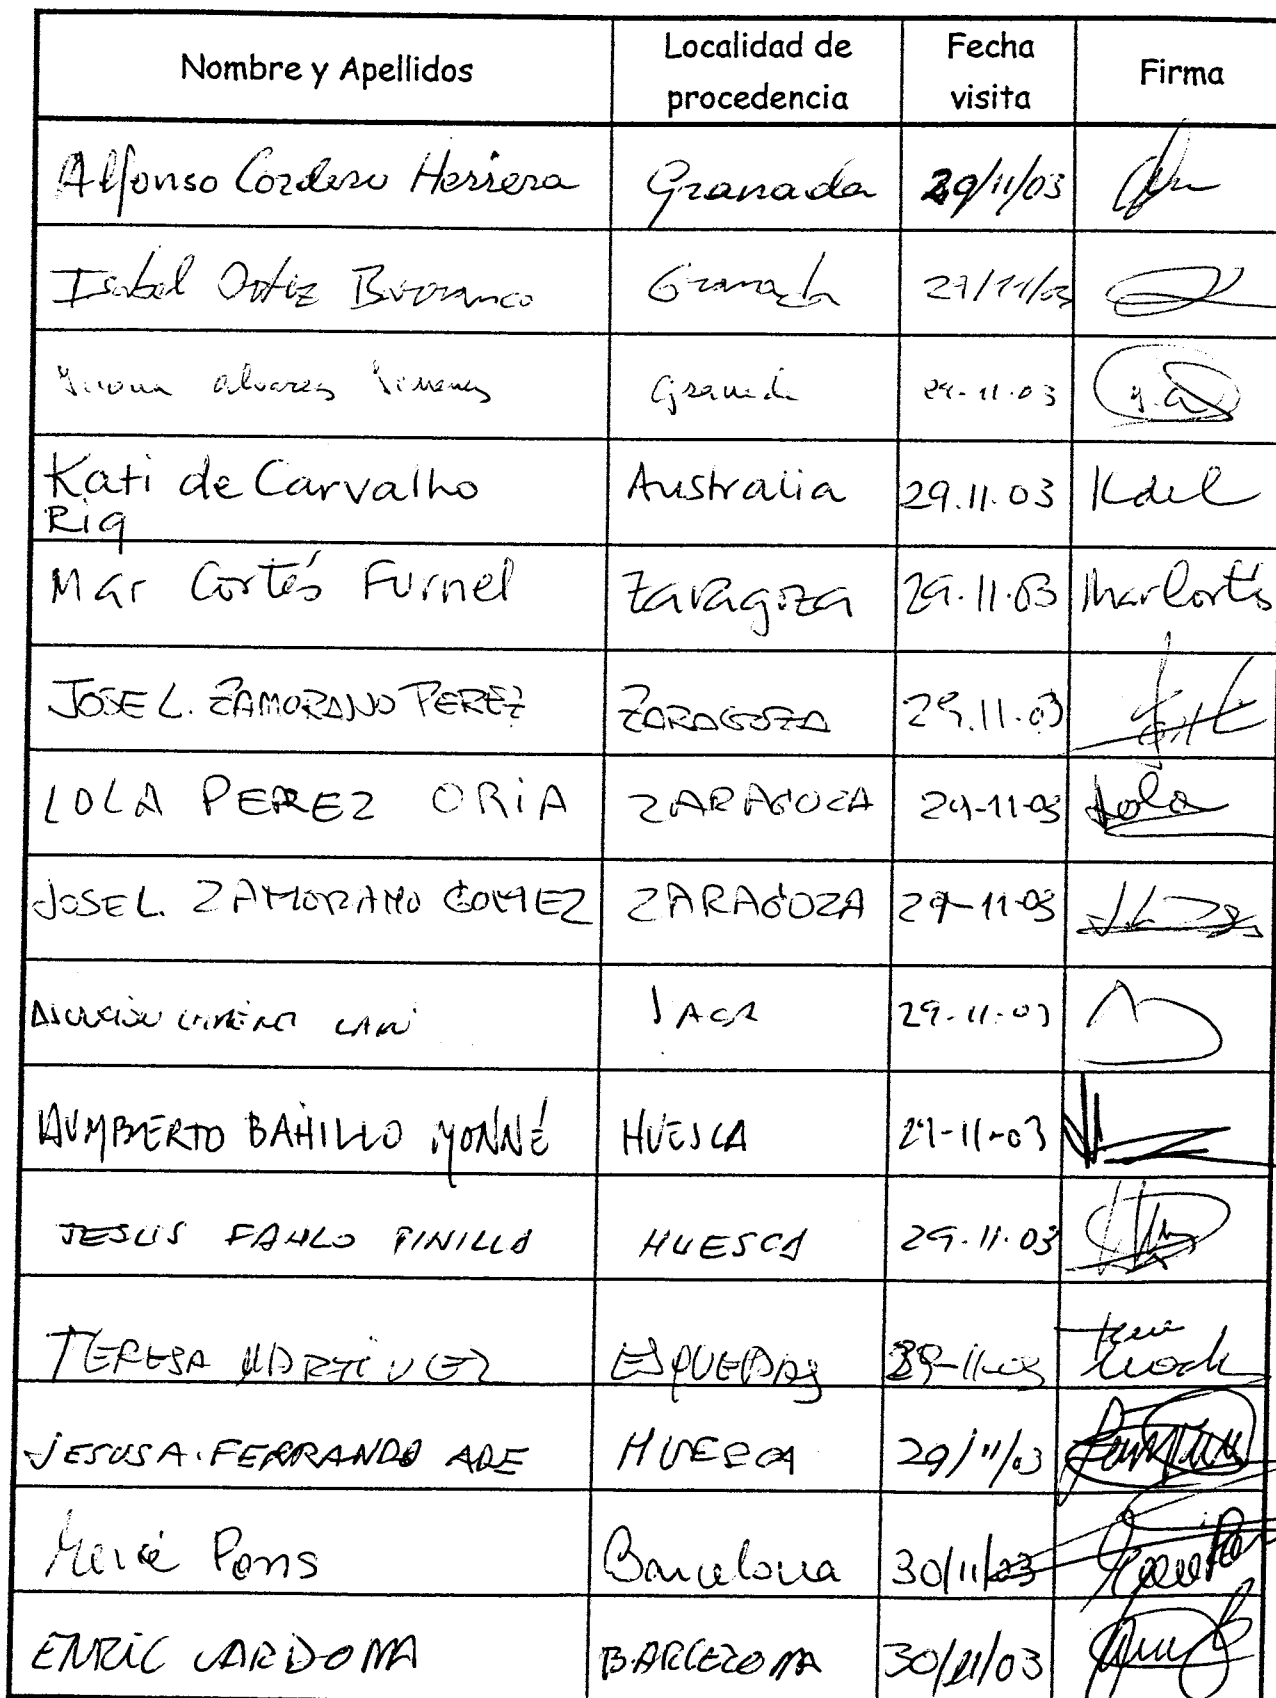 Nombre y Apellidos Localidad de procedencia Fecha visita Firma
Alfonso Cordero Herrera Granada 29/11/03
Isabel Ortiz Granada 29/11/03
alvarez Granada 29-11-03
Kati de Carvalho Australia 29.11.03
Mar Cortés Furnel Zaragoza 29.11.03 Mar Cortés
JOSE L. ZAMORANO PEREZ ZARAGOZA 29.11.03
LOLA PEREZ ORIA ZARAGOZA 29-11-03 Lola
JOSE L. ZAMORANO GOMEZ ZARAGOZA 29-11-03
JACA 29-11-03
HUMBERTO BAHILLO MONNÉ HUESCA 29-11-03
JESUS FAHLO PINILLA HUESCA 29.11.03
TERESA MARTINEZ ESQUEDAS 29-11-03
JESUS A. FERRANDO ADE HUESCA 29/11/03
Pons Barcelona 30/11/03
ENRIC CARDONA BARCELONA 30/11/03